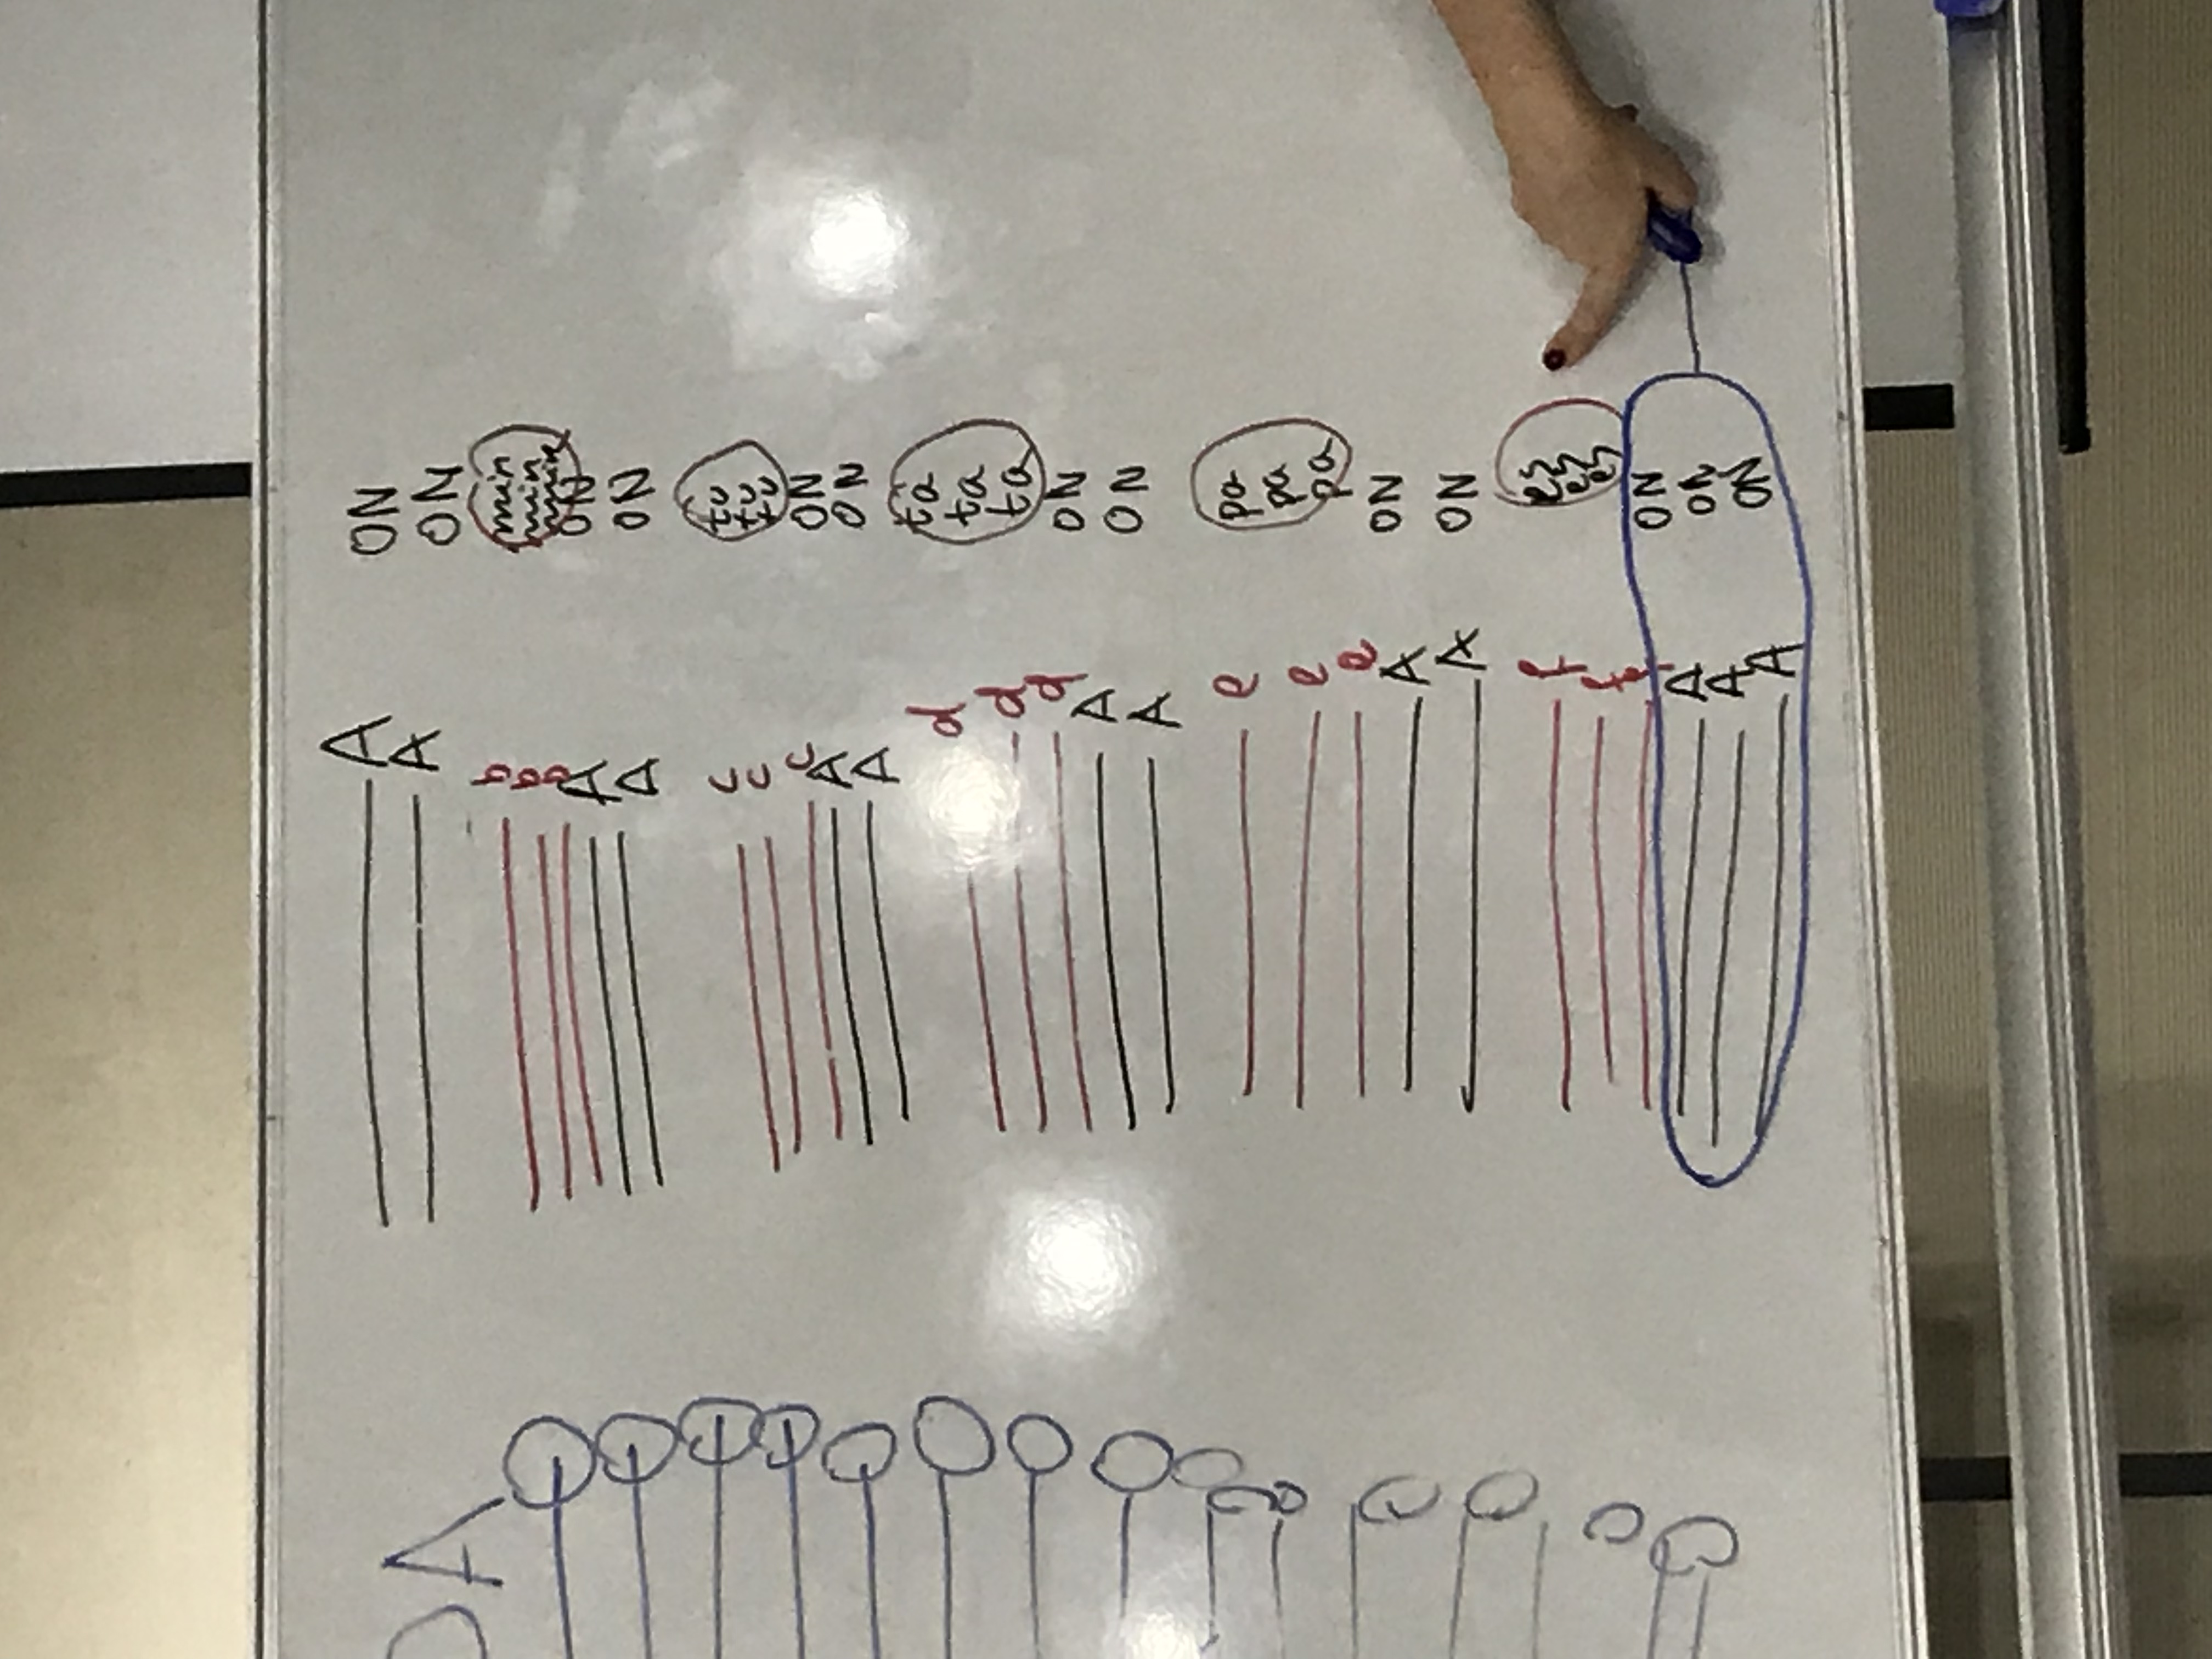 A
A ON
A ON
b min
b min
b min
A ON
A ON
c tu
c tu
c tu
A ON
A ON
d ta
d ta
d ta
A ON
A ON
e pa
e pa
e pa
A ON
A ON
f
f
f
A ON
A ON
A ON